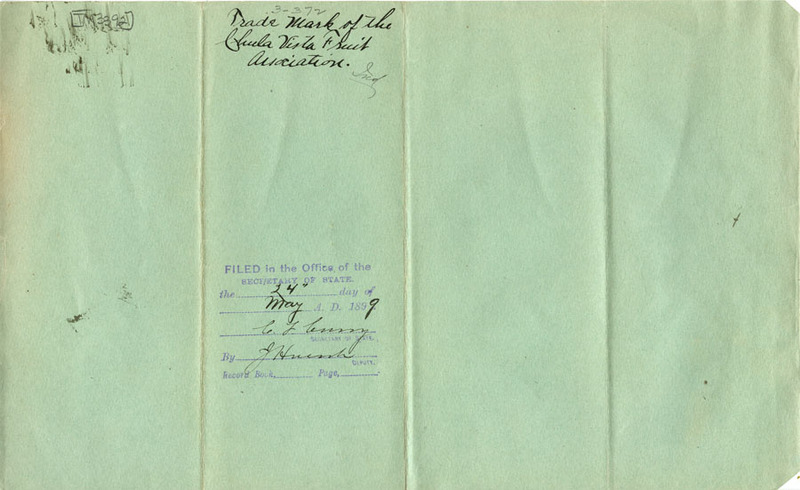 3-372
Trade Mark of the
Chula Vista Fruit
Association.
Ind
FILED in the Office of the
SECRETARY OF STATE.
the 24" day of
May A. D. 1899
C F Curry
SECRETARY OF STATE.
By J Hoesch
DEPUTY.
Record Book, Page,